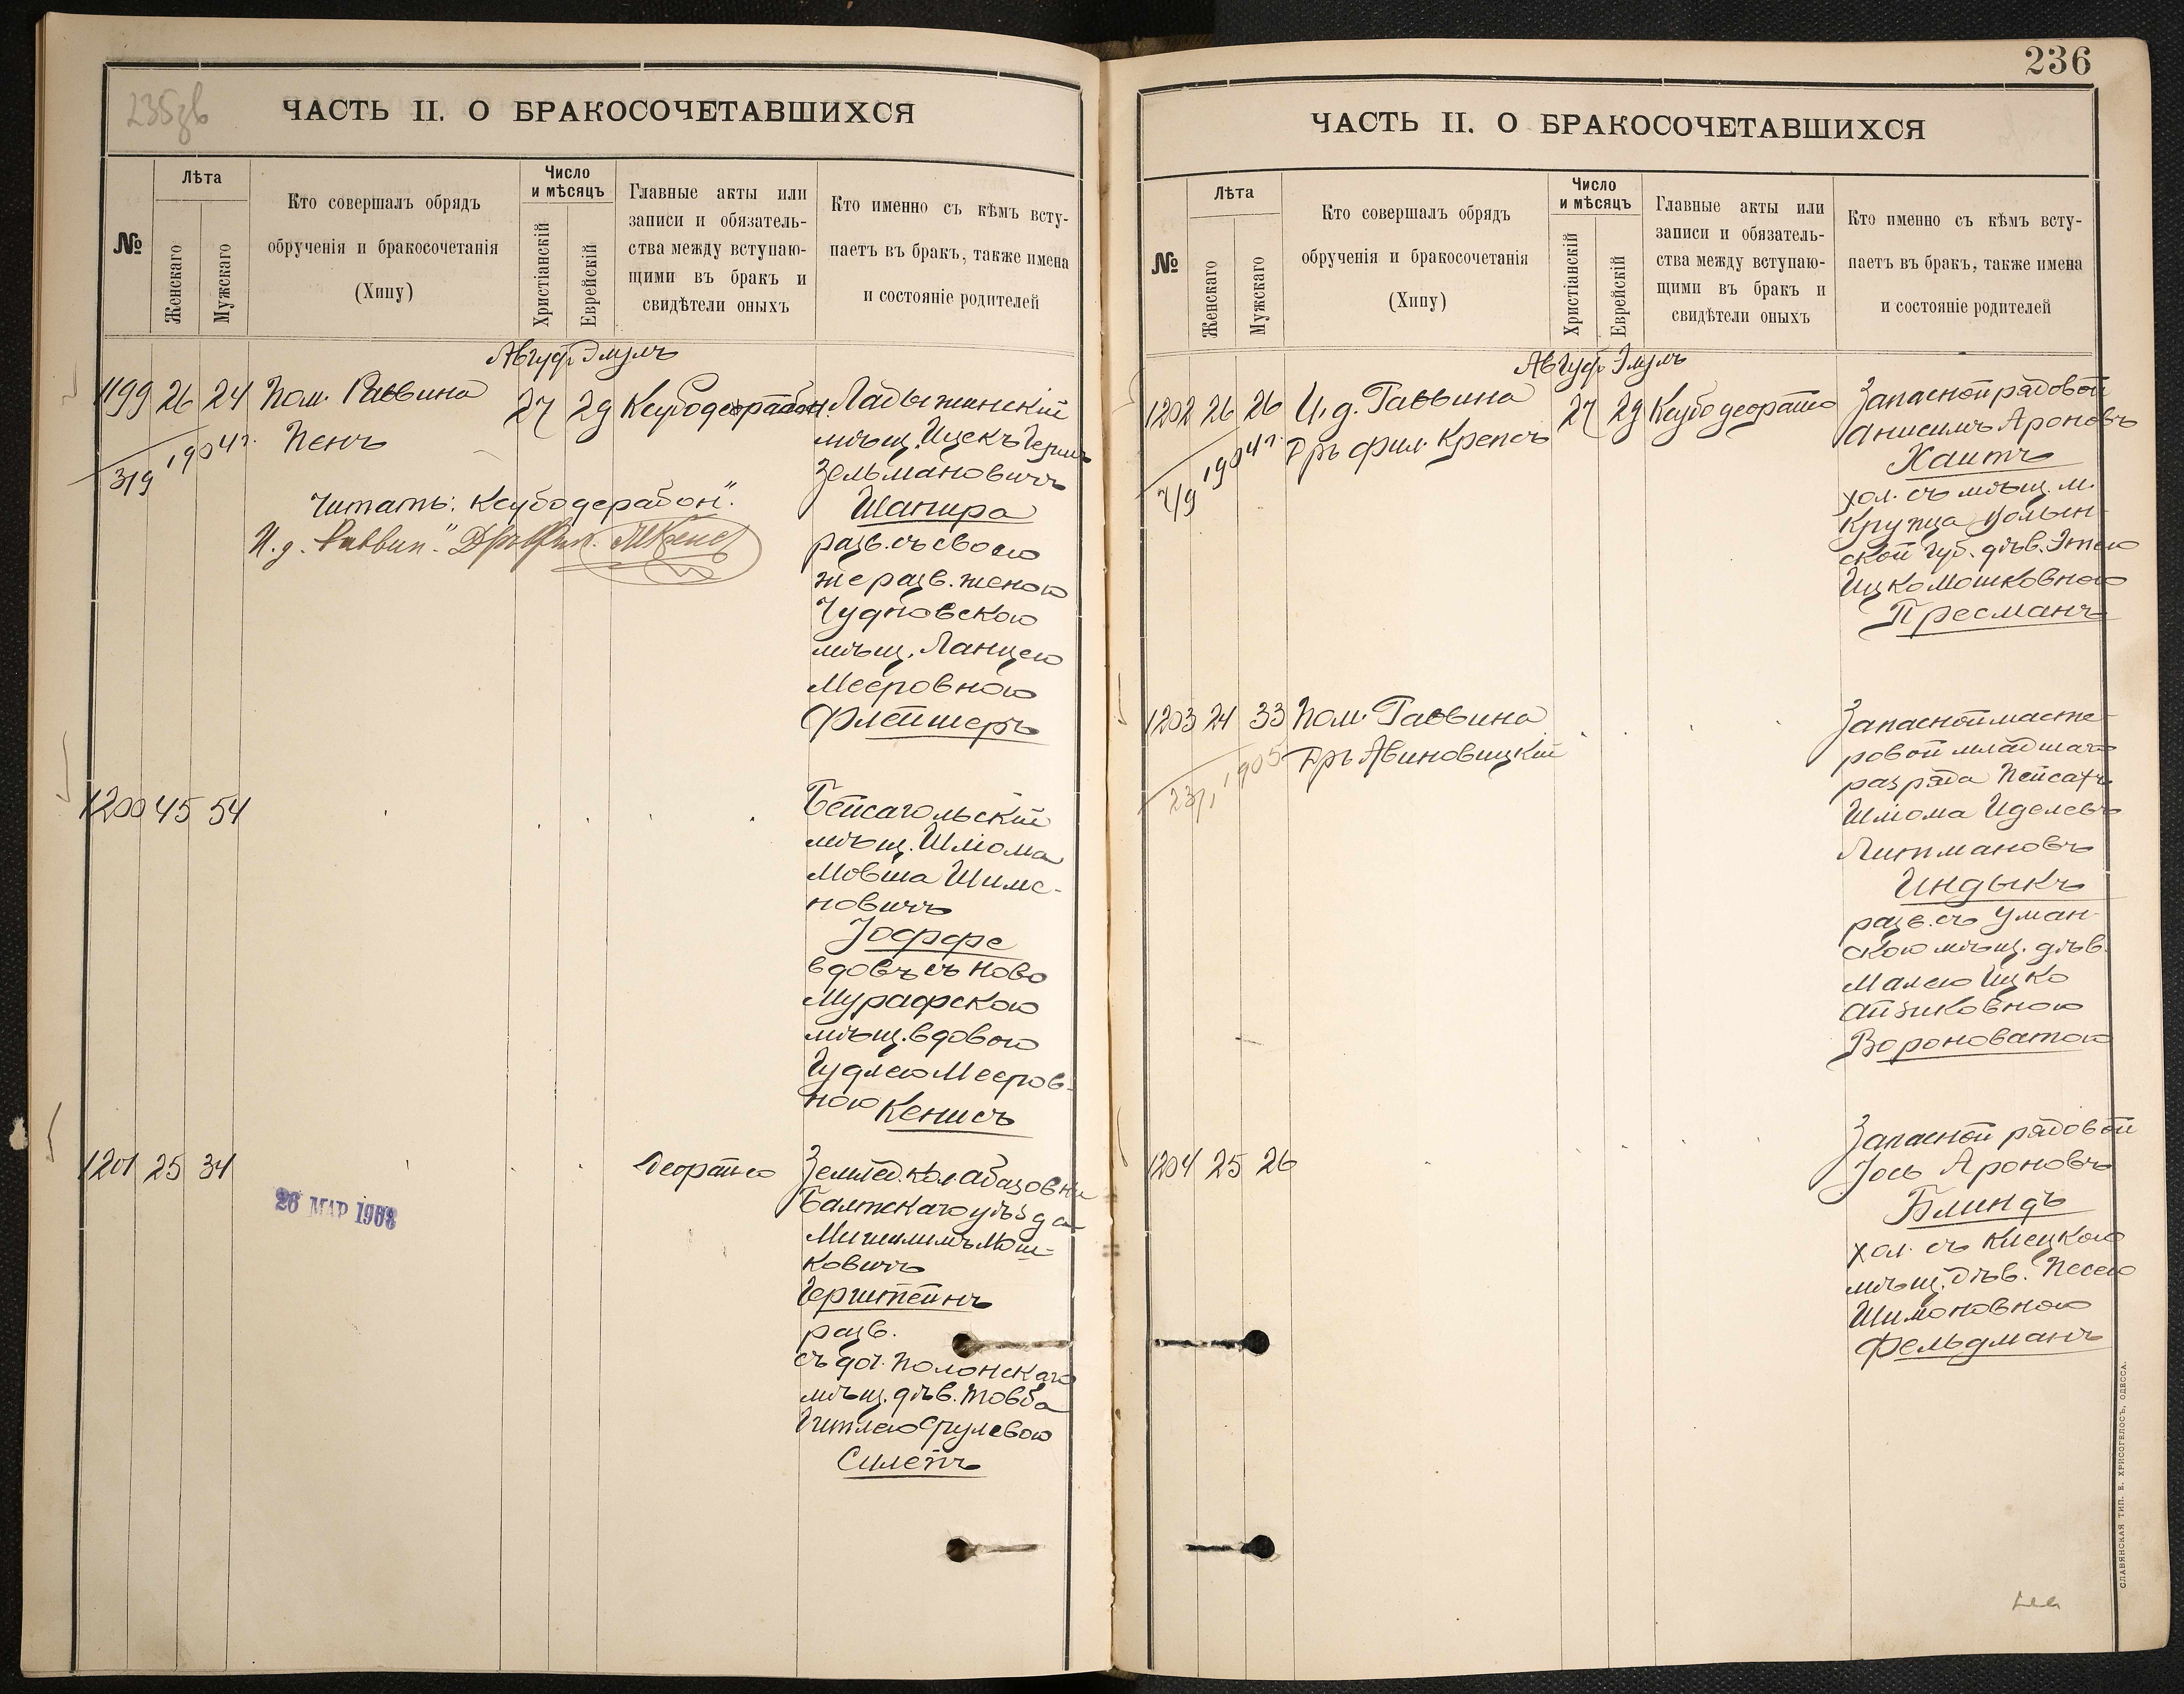 235зв
ЧАСТЬ II. О БРАКОСОЧЕТАВШИХСЯ
№
Лѣта
Женскаго
Мужскаго
Кто совершалъ обрядъ
обрученія и бракосочетанія
(Хипу)
Число
и мѣсяцъ
Христіанскій
Еврейскій
Главные акты или
записи и обязатель-
ства между вступаю-
щими въ бракъ и
свидѣтели оныхъ
Кто именно съ кѣмъ всту-
паетъ въ бракъ, также имена
и состояніе родителей
Авгус. Элулъ
1199 26 24 Пом. Раввина 27 29
Пенъ
3/9 1904 г.
Ладыжинскій
мѣщ. Ицекъ Герш
Зельмановичъ
Шапира
разв. съ своею
же разв. женою
Чудновскою
мѣщ. Ланцею
Мееровною
Флейшеръ
Читать:
И. д. Раввин."
1200 45 54
Бейсагольскій
мѣщ. Шліома
Мовша Шимо-
новичъ
Іоффе
вдовъ съ Ново
Мурафскою
мѣщ. вдовою
Гудлею Мееров-
ною Кенисъ
1201 25 34
Землед. кол. Абазовки
Балтскаго уѣзда
Мош-
ковичъ
Герштейнъ
разв.
съ доч. Полонскаго
мѣщ. дѣв. Товба
Гитлею Срулевою
26 МАР 1908
236
ЧАСТЬ II. О БРАКОСОЧЕТАВШИХСЯ
№
Лѣта
Женскаго
Мужскаго
Кто совершалъ обрядъ
обрученія и бракосочетанія
(Хипу)
Число
и мѣсяцъ
Христіанскій
Еврейскій
Главные акты или
записи и обязатель-
ства между вступаю-
щими въ бракъ и
свидѣтели оныхъ
Кто именно съ кѣмъ всту-
паетъ въ бракъ, также имена
и состояніе родителей
Авгус. Элулъ
1202 26 26 И. д. Раввина 27 29
Дръ фил. Крепсъ
7/9 1904 г.
Запасной рядовой
Анисимъ Ароновъ
Хаитъ
хол. съ мѣщ. м.
Крупца Волын-
ской губ. дѣв. Этею
Ицко Мошковною
Пресманъ
1203 24 33 Пом. Раввина
Дръ Авиновицкій
1905
Запасной масте-
ровой младшаго
разряда Пейсахъ
Шлиома Иделевъ
Липмановъ
Индыкъ
разв. съ Уман-
скою мѣщ. дѣв.
Малею Ицко
Айзиковною
Вороноватою
1204 25 26
Запасной рядовой
Іось Ароновъ
Блиндъ
хол. съ Клецкою
мѣщ. дѣв. Песею
Шимоновною
Фельдманъ
СЛАВЯНСКАЯ ТИП. Е. ХРИСОГЕЛОСЪ, ОДЕССА.